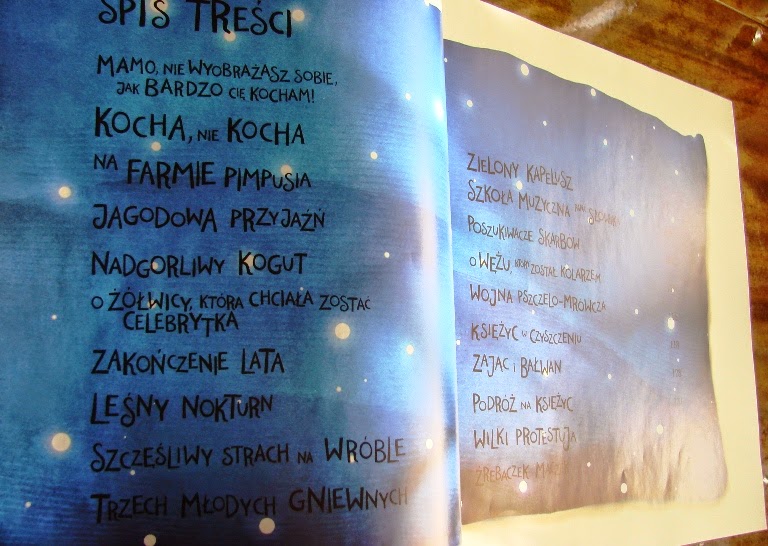 SPIS TREŚCI
MAMO, NIE WYOBRAŻASZ SOBIE,
JAK BARDZO CIĘ KOCHAM!
KOCHA, NIE KOCHA
NA FARMIE PIMPUSIA
JAGODOWA PRZYJAŹŃ
NADGORLIWY KOGUT
O ŻÓŁWICY, KTÓRA CHCIAŁA ZOSTAĆ
CELEBRYTKĄ
ZAKOŃCZENIE LATA
LEŚNY NOKTURN
SZCZĘŚLIWY STRACH NA WRÓBLE
TRZECH MŁODYCH GNIEWNYCH
ZIELONY KAPELUSZ
SZKOŁA MUZYCZNA
POSZUKIWACZE SKARBÓW
O WĘŻU, KTÓRY ZOSTAŁ KOLARZEM
WOJNA PSZCZELO-MRÓWCZA
KSIĘŻYC W CZYSZCZENIU
ZAJĄC I BAŁWAN
PODRÓŻ NA KSIĘŻYC
WILKI PROTESTUJĄ
ŹREBACZEK